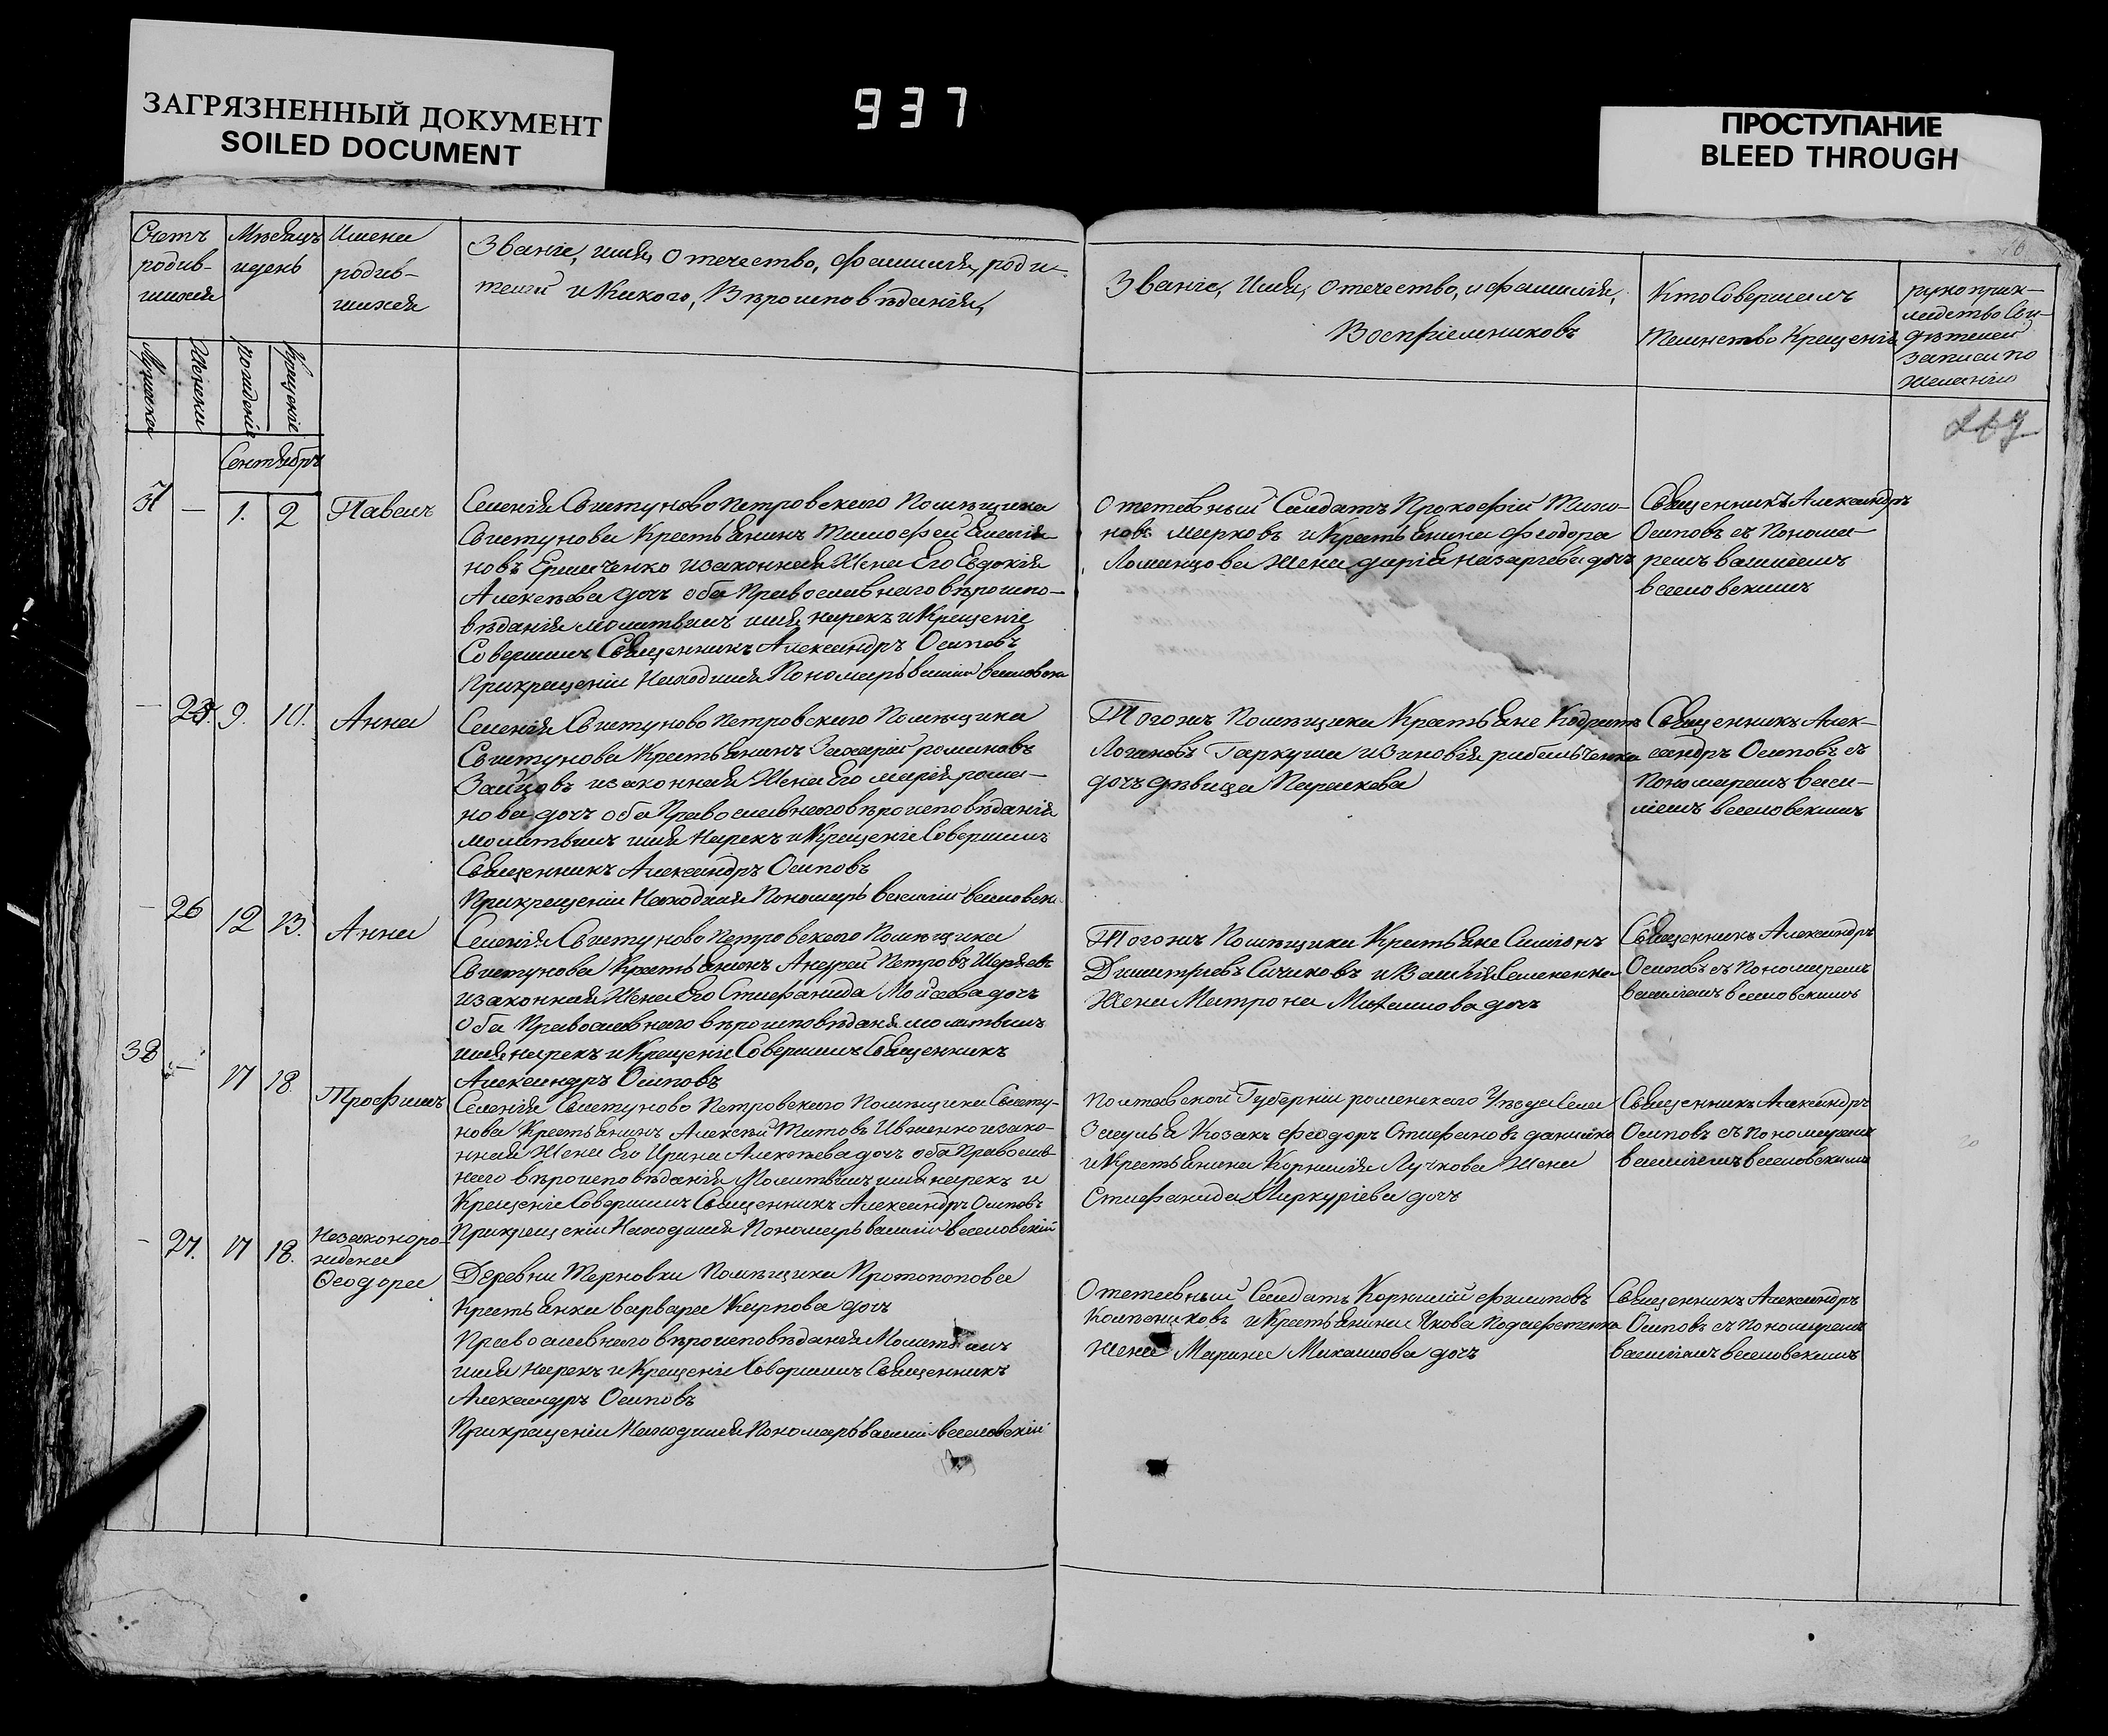 ЗАГРЯЗНЕННЫЙ ДОКУМЕНТ
SOILED DOCUMENT
937
ПРОСТУПАНИЕ
BLEED THROUGH
Счетъ
родив-
шихся
Мѣсяцъ
и день
Имена
родив-
шихся
Званіе, имя, отечество, фамилія, роди-
телей и какого, Вѣроисповѣданія,
Званіе, Имя, отечество, и фамилія,
Воспріемниковъ
Кто Совершалъ
таинство Крещенія
рукоприк-
ладство Сви-
дѣтелей
записи по
желанію
Мужеска
Женска
рождения
Крещеніе
Сентябрь
37 — 1. 2 Павелъ
Селенія Свистуново Петровского Помѣщика
Свистунова Крестьянинъ Тимофей Емелія-
новъ Ермаченко и законная Жена Его Евдокія
Алексѣева дочь оба Православнаго вѣроиспо-
вѣданія молитвилъ имя нарекъ и Крещеніе
Совершилъ Священникъ Александръ Осиповъ
При крещеніи Находился Пономарь василій веселовскі
Отставный Салдатъ Прокофій Тихо-
новъ Марковъ и Крестьянина Феодора
Ломанцова Жена дарія Назарьева дочь
Священникъ Александръ
Осиповъ съ Понома-
ремъ василіемъ
веселовскимъ
— 25. 9. 10. Анна
Селенія Свистуново Петровского Помѣщика
Свистунова Крестьянинъ Захарій романовъ
Зайцовъ и законная Жена Его марія рома-
нова дочь оба Православнаго вѣроисповѣданія
молитвилъ имя Нарекъ и Крещеніе Совершилъ
Священникъ Александръ Осиповъ
При крещеніи Находился Пономарь василій веселовскі
Тогожъ Помѣщика Крестьяне Кодратъ
Логиновъ Гаркуша и Зиновія рибальченка
дочь дѣвица Параскева
Священникъ Алек-
сандръ Осиповъ съ
Пономаремъ васи-
ліемъ веселовскимъ
— 26 12 13. Анна
Селенія Свистуново Петровского Помѣщика
Свистунова Крестьянинъ Андрей Петровъ
и законная Жена Его Стефанида Мойсѣева дочь
Оба Православнаго вѣроисповѣданія молитвилъ
имя нарекъ и Крещеніе Совершилъ Священникъ
Александръ Осиповъ
Тогожъ Помѣщика Крестьяне Симіонъ
Димитріевъ Сичиковъ и Василія Семененка
Жена Матрона Михаилова дочь
Священникъ Александръ
Осиповъ съ Пономаремъ
василіемъ веселовскимъ
38 — 17 18. Трофимъ
Селенія Свистуново Петровского Помѣщика Свисту-
нова Крестьянинъ Алексѣй Титовъ Ивженко и зако-
нная Жена Его Ирина Алексѣева дочь оба Правосла-
внаго вѣроисповѣданія Молитвилъ имя нарекъ и
Крещеніе Совершилъ Священникъ Александръ Осиповъ
При крещеніи Находился Пономарь василій веселовскій
Полтавской Губерніи роменского Уѣзда Села
Засулья Козакъ Феодоръ Стефановъ данилко
и Крестьянина Корнилія Лучкова Жена
Стефанида Маркуріева дочь
Священникъ Александръ
Осиповъ съ Пономаремъ
василіемъ веселовскимъ
— 27. 17 18. Незаконоро-
ждена
Феодора
Деревни Терновки Помѣщика Протопопова
Крестьянка варвара Карпова дочь
Православнаго вѣроисповѣданія Молитвилъ
имя Нарекъ и Крещеніе Совершилъ Священникъ
Александръ Осиповъ
При крещеніи Находился Пономарь василій веселовскій
Отставный Салдатъ Корнилій Филиповъ
и Крестьянина Якова
Жена Марина Михаилова дочь
Священникъ Александръ
Осиповъ съ Пономаремъ
василіемъ веселовскимъ